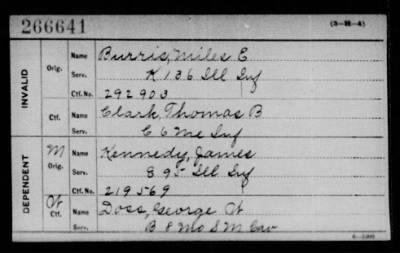 266641 (3-H-4)
INVALID
Orig. Name Burris, Miles E
Serv. K 136 Ill Inf
Ctf. No. 292903
Ctf. Name Clark, Thomas B
Serv. C 6 Me Inf
DEPENDENT
M Orig. Name Kennedy, James
Serv. E 95 Ill Inf
Ctf. No. 219569
Ctf. Name Doss, George W
Serv. B 8 Mo S M Cav